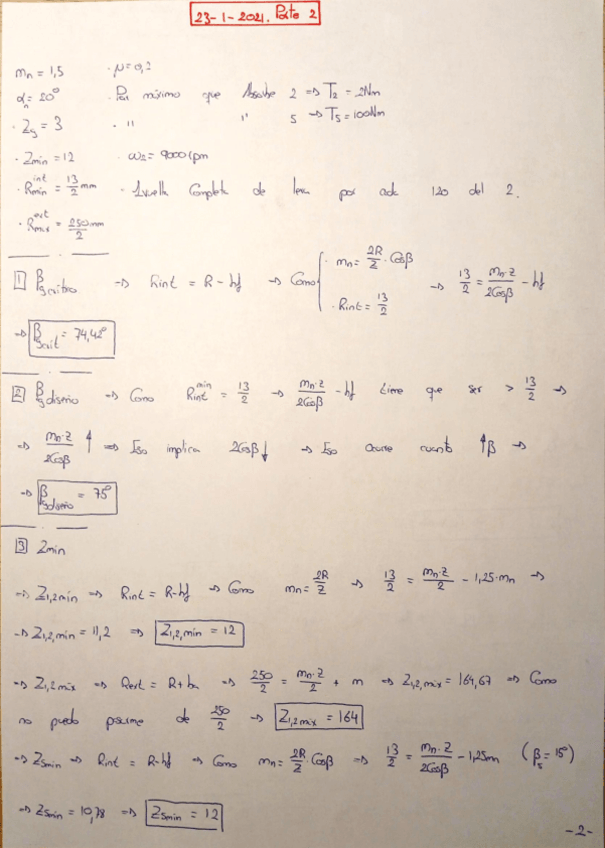 23-1-2021. Parte 2
mn = 1,5 · μ = 0,2
αn = 20° · Par máximo que Absorbe 2 => T2 = 2Nm
· Z3 = 3 · " " 5 -> T5 = 100Nm
· Zmin = 12 · ω2 = 9000 rpm
· Rmin^int = 13/2 mm · 1 vuelta Completa de leva por cada 120 del 2.
· Rmax^ext = 250mm/2
1 β3crítico -> Rint = R - hf -> Como { · mn = 2R/Z · Cosβ · Rint = 13/2 -> 13/2 = mn·Z/2Cosβ - hf
-> β3crit = 74,42°
2 β3diseño -> Como Rint^min = 13/2 -> mn·Z/2Cosβ - hf tiene que ser > 13/2 ->
-> mn·Z/2Cosβ ↑ => Eso implica 2Cosβ↓ -> Eso ocurre cuanto ↑β ->
-> β3diseño = 75°
3 Zmin
-> Z1,2min -> Rint = R-hf -> Como mn = 2R/Z -> 13/2 = mn·Z/2 - 1,25·mn ->
-> Z1,2,min = 11,2 => Z1,2,min = 12
-> Z1,2máx -> Rext = R + ha -> 250/2 = mn·Z/2 + m -> Z1,2,máx = 164,67 -> Como
no puedo pasarme de 250/2 -> Z1,2máx = 164
-> Z5min -> Rint = R-hf -> Como mn = 2R/Z · Cosβ => 13/2 = mn·Z/2Cosβ - 1,25mn (β5 = 15°)
-> Z5min = 10,78 => Z5min = 12
-2-